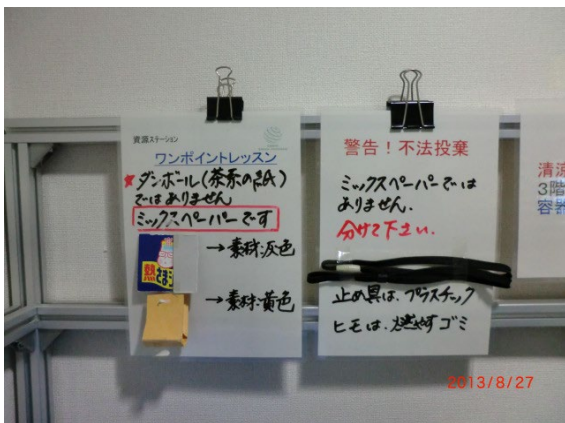 資源ステーション
ワンポイントレッスン
★ダンボール(茶系の紙)
ではありません
ミックスペーパーです
熱さまシ
→素材:灰色
→素材:黄色
警告!不法投棄
ミックスペーパーでは
ありません.
分けて下さい.
止め具は.プラスチック
ヒモは.燃やすゴミ
清涼
3階
容器
2013/8/27